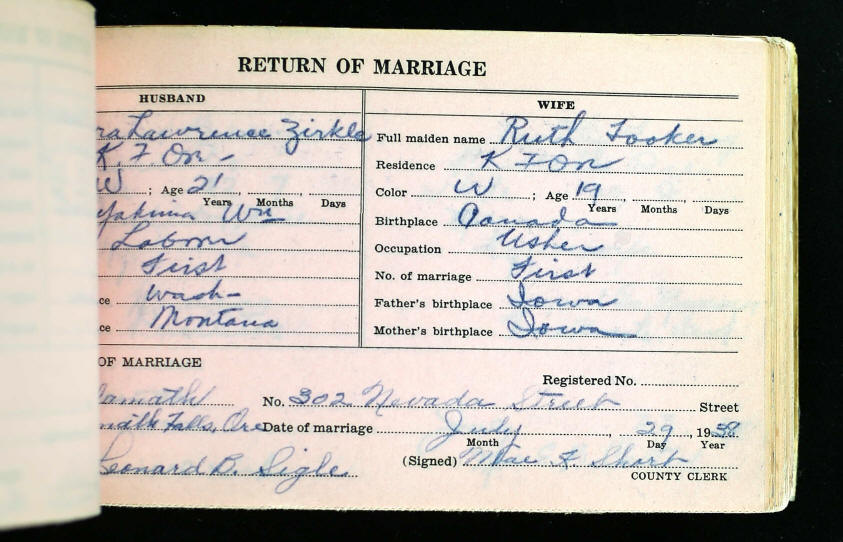 RETURN OF MARRIAGE
HUSBAND
WIFE
ra Lawrence Zirkle
K. F On -
W ; Age 21
Years Months Days
Yakima Wn
Labor
First
ce Wash-
ce Montana
Full maiden name Ruth Tooker
Residence K F On
Color W ; Age 19
Years Months Days
Birthplace Canada
Occupation Usher
No. of marriage First
Father's birthplace Iowa
Mother's birthplace Iowa
OF MARRIAGE
Registered No.
amath No. 302 Nevada Street Street
math Falls, Ore Date of marriage July , 29 , 1938
Month Day Year
Leonard B. Sigle. (Signed) Mae K Short
COUNTY CLERK